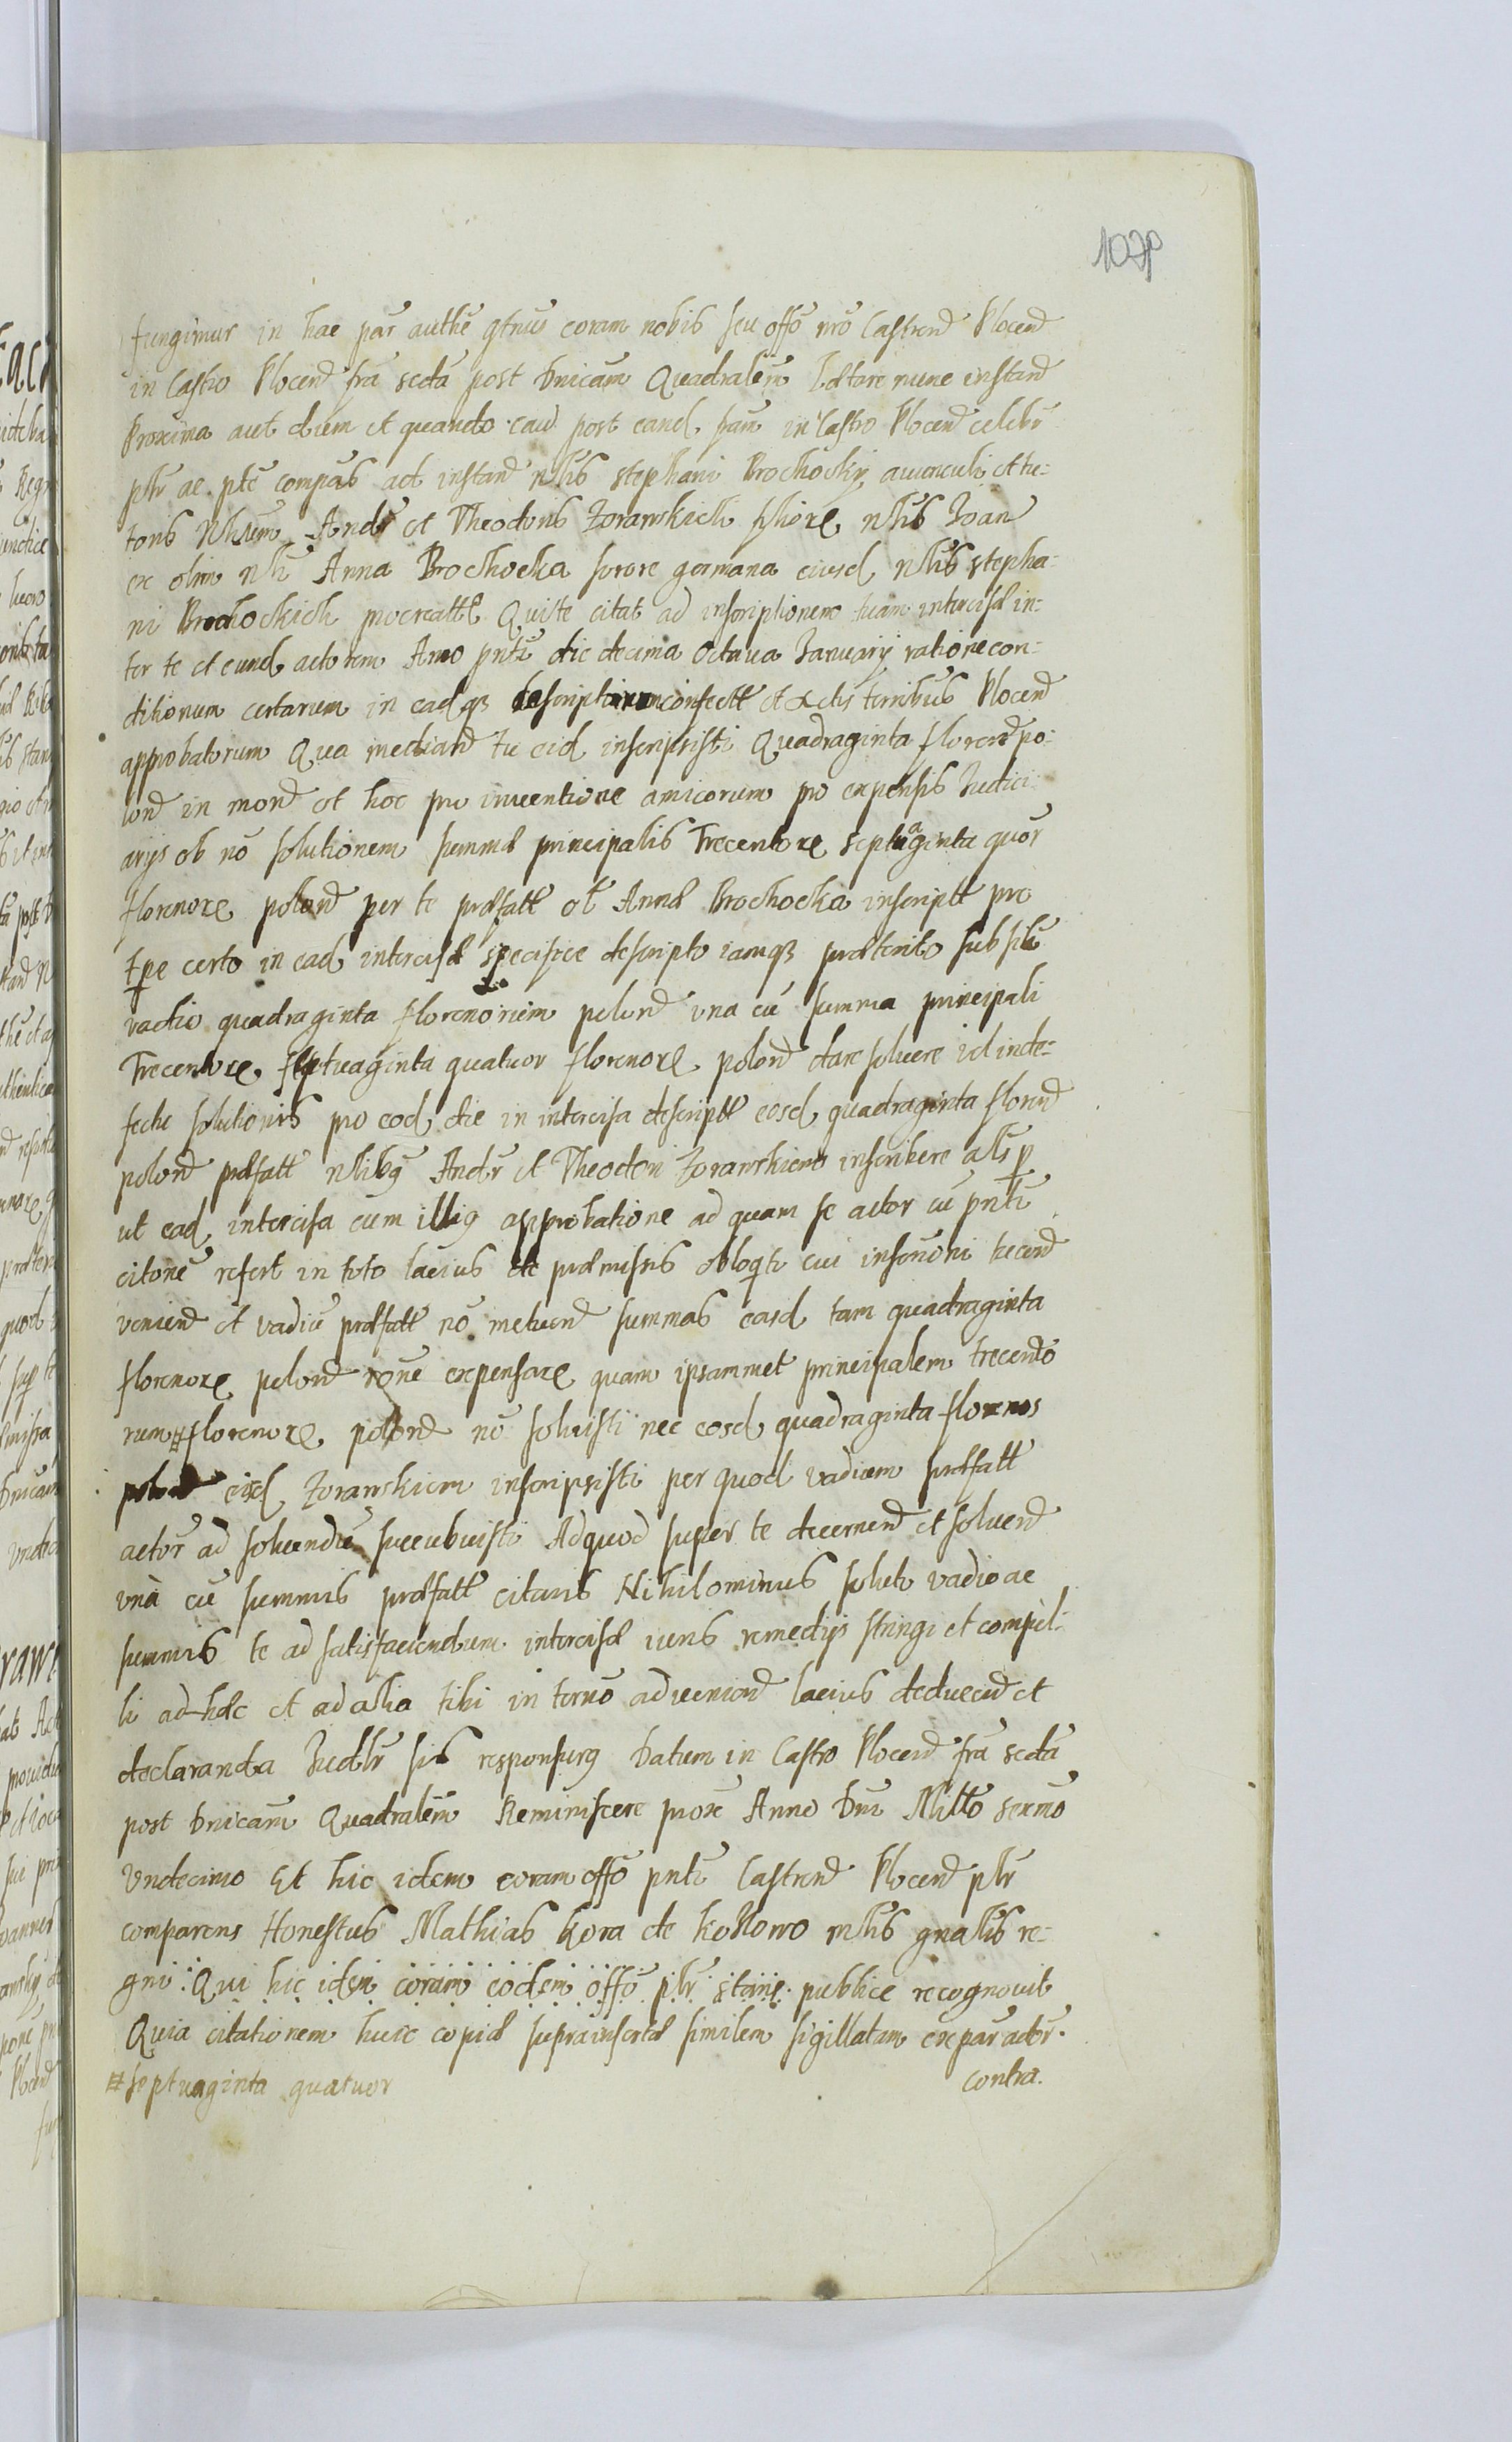 107
fungimur in hac par authē qtnus coram nobis seu offō nrō Castren Plocen
in Castro Plocen fra scda post Dnicam Quadralem Lætare nunc instan
Proxima aut dum et quando cau post eand fram in Castro Plocen celebr
plr ac pte compas ad instan nlis Stephani Brochocky auunculi et tu:
toris Nlium Andr et Theodoris Zorawskich filior nlis Joan
ex olim nli Anna Brochocka sorore germana eiusd nlis Stepha:
ni Brochockich procreatt Qui te citat ad inscriptionem tuam intercisæ in:
ter te et eund actorem Anno pnti die decima Octaua January ratione con:
ditionum certarum in eadq descriptarum confectæ et Actis terribus Plocen
approbatorum Qua median tu eid inscripsisti Quadraginta floren po:
lon in mon et hoc pro inuentione amicorum pro expensis Iudici:
arys ob nō solutionem summæ principalis Trecentor septuaginta quor
florenor polon per te præfatt ol Annæ Brochocka inscriptt pro
tpe certo in ead intercisæ specifice descripto iamq præterito sub sili
vadio quadraginta florenorum polon vna cū summa principali
Trecentor septuaginta quatuor florenor polon dare soluere id in de:
fectu solutionis pro eod die in intercisa descriptt eosd quadraginta floren
polon præfatt nlibq Andr et Theodori Zorawskiem inscribere als p
ut ead intercisa cum illiq approbatione ad quam se actor cū pnti
citone refert in toto lacius de præmissis obloqti cui inscrōni tu con
uenien et vadiū præfatt nō metuen summas easd tam quadraginta
florenor polon rōne expensar quam ipsammet principalem trecento
rum # florenor polon nō soluisti nec eosd quadraginta florenos
polon eisd Zorawskiem inscripsisti per quod vadium præfatt
actōr ad soluendū succubuisti Ad quod super te decernen et soluen
vnà cū summis præfatt citaris Nihilominus soluto vadio ac
summis te ad satisfaciendum intercisæ iuris remedys stringi et compel:
li ad hæc et ad alia tibi in termō aduenien lacius deducen et
declaranda Iudlr sis responsurq Datum in Castro Plocen fra scda
post Dnicam Quadralem Reminiscere prox Anno Dni Millo sexmo
Vndecimo Et hic idem coram offō pnti Castren Plocen plr
comparens Honestus Mathias Kora de Koklowo mlis gnalis re:
gni Qui hic idem coram eodem offō plr stans publice recognouit
Quia citationem huic copiæ suprainsertæ similem sigillatam ex par actōr.
# septuaginta quatuor
contra.